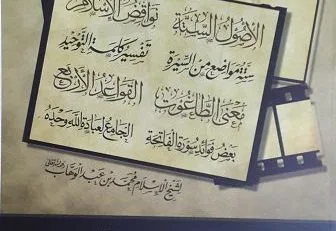 الأصول الستة
نواقض الإسلام
ستة مواضع من السيرة
تفسير كلمة التوحيد
معنى الطاغوت
القواعد الأربع
بعض فوائد سورة الفاتحة
الجامع لعبادة الله وحده
لشيخ الإسلام محمد بن عبد الوهاب رحمه الله